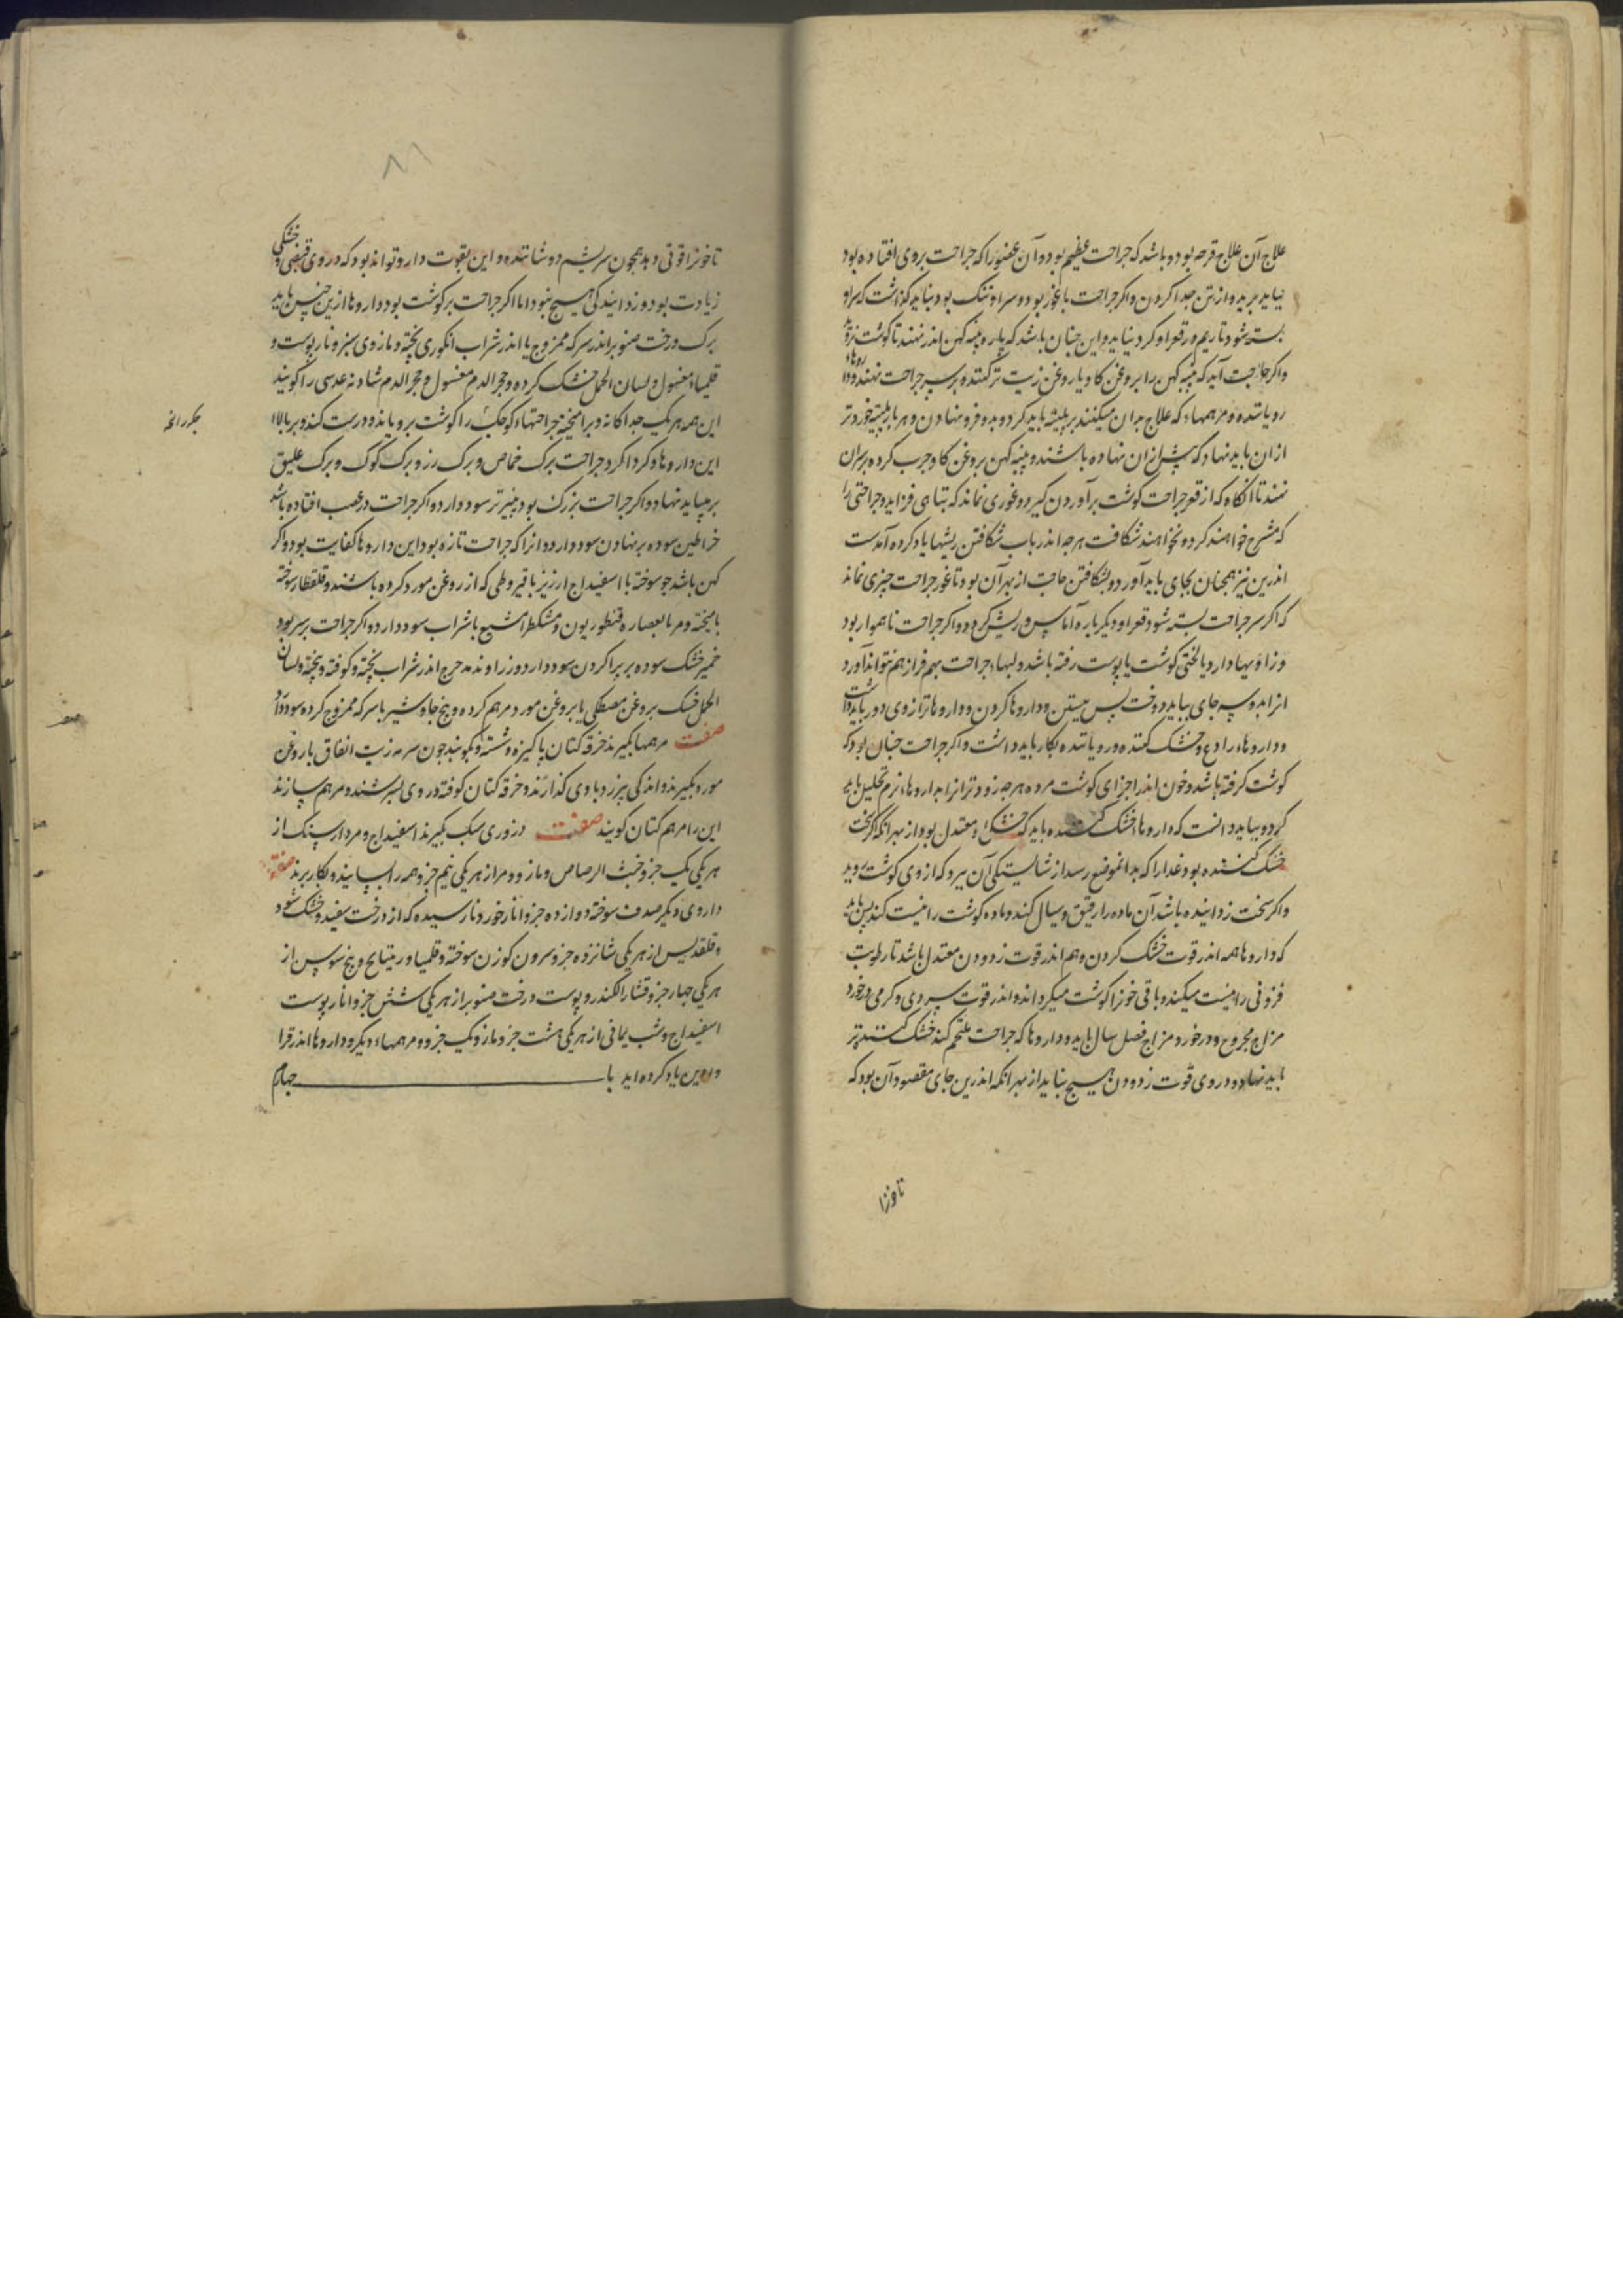 علاج آن علاج قرحه بود و باشد که جراحت عظیم بود و آن عضو را که جراحت بروی افتاده بود
نباید برید و از تن جدا کردن و اگر جراحت باغور بود و سر او تنک بود نباید گذاشت که سر او
بسته شود تا ریم در قعر او گرد نیاید و این چنان باشد که پاره پنبه کهن اندر نهند تا گوشت
و اگر حاجت آید که پنبه کهن را بروغن کاو یا روغن زیت تر کنند و بر سر جراحت نهند و داروها
رویانیده و مرهمهاء که علاج بدان میکنند بر پلیته باید کرد و بدو فرو نهادن و هر بار پلیته خوردتر
از ان باید نهاد که پیش از ان نهاده باشند و پنبه کهن بروغن کاو چرب کرده بر سر ان
نهند تا انکاه که از قعر جراحت گوشت برآوردن گیرد و غوری نماند که تباهی فزاید و جراحتی را
که مشرح خواهند کرد و بخواهند شکافت هرچه اندر باب شکافتن ریشها یاد کرده آمدست
اندرین نیز همچنان بجای باید آورد و بشکافتن حاجت از بهر آن بود تا غور جراحت چیزی نماند
که اکر سر جراحت بسته شود و قعر او دیکر باره آماس و ریش گردد و اکر جراحت ناهموار بود
و زاویها دارد یا لختی گوشت یا پوست رفته باشد و لبهاء جراحت بهم فراز هم نتواند آورد
انرا بدو سه جای بباید دوخت پس بستن و داروها کردن و داروها تر از وی دور باید داشت
و داروهاء رادع و خشک کننده و رویاننده بکار باید داشت و اکر جراحت چنان بود که
گوشت کرفته باشد و خون اندر اجزای گوشت مرده هرچه زودتر انرا بداروهاء نرم تحلیل باید
کرد و بباید دانست که داروهاء خشک کننده باید که خشکی او معتدل بود از بهر انکه اکر سخت
خشک کننده بود غذا را که بدانموضع رسد از شایستکی آن ببرد که از وی گوشت روید
و اکر سخت زداینده باشد آن ماده را رقیق و سیال کند و ماده گوشت را نیست کند پس باید
که داروها همه اندر قوت خشک کردن و هم اندر قوت زدودن معتدل باشد تا رطوبت
فزونی را نیست میکند و باقی خون را گوشت میکرداند و اندر قوت سردی و کرمی درخورد
مزاج مجروح و درخورد مزاج فصل سال باید و داروها که جراحت ملتحم کند خشک کننده تر
باید نهاد و در وی قوت زدودن هیچ نباید از بهر انکه اندرین جای مقصود آن بود که
تا خون را
تا خون را قوتی دهد همچون سریشم دوشاننده و این بقوت دارو تواند بود که در وی قبضی و خشکی
زیادت بود و زدایندکی هیچ نبود اما اکر جراحت بر گوشت بود داروها ازین جنس باید
برک درخت صنوبر اندر سرکه ممزوج یا اندر شراب انکوری پخته و مازوی سبز و نار پوست و
قلمیاء مغسول و لسان الحمل خشک کرده و حجر الدم مغسول و حجر الدم شادنه عدسی را گویند
این همه هر یک جداکانه و برامیخته جراحتهاء کوچک را گوشت برویاند و درست کند و بر بالاء
این داروها و کرداکرد جراحت برک حماض و برک رز و برک کوک و برک علیق
بر بباید نهاد و اکر جراحت بزرک بود پنیر تر سود دارد و اکر جراحت در عصب افتاده باشد
خراطین سوده بر نهادن سود دارد و انرا که جراحت تازه بود این داروها کفایت بود و اکر
کهن باشد جو سوخته با اسفیداج ارزیز با قیروطی که از روغن مورد کرده باشند و قلقطار سوخته
بامیخته و مر بالعصاره قنطوریون و مشکطرامشیع با شراب سود دارد و اکر جراحت بر سر بود
خمیر خشک سوده بر پراکردن سود دارد و زراوند مدحرج اندر شراب پخته و کوفته و پخته و لسان
الحمل خشک بروغن مصطکی یا بروغن مورد مرهم کرده و بیخ جاوشیر با سرکه ممزوج کرده سود دارد
صفت مرهمها بکیرند خرقه کتان پاکیزه و شسته و بکوبند چون سرمه زیت انفاق با روغن
مورد بکیرند و اندکی بیرزد با وی کدازند و خرقه کتان کوفته در وی بسرشند و مرهم سازند
این را مرهم کتان کویند صفت ذروری سبک بکیرند اسفیداج و مرداسنک از
هر یکی یک جزو خبث الرصاص و مازو و مر از هر یکی نیم جزو همه را بسایند و بکار برند صفت
داروی دیکر صدف سوخته دوازده جزو انار خورد نارسیده که از درخت بیفتد و خشک شود
و قلقدیس از هر یکی شانزده جزو سرون کوزن سوخته و قلمیا و ریتیانج و بیخ سوس از
هر یکی چهار جزو قشار الکندر و پوست درخت صنوبر از هر یکی شش جزو انار پوست
اسفیداج و شب یمانی از هر یکی هشت جزو مازو یک جزو و مرهمهاء دیکر و داروها اندر قرا
بادین یاد کرده اید با چهارم